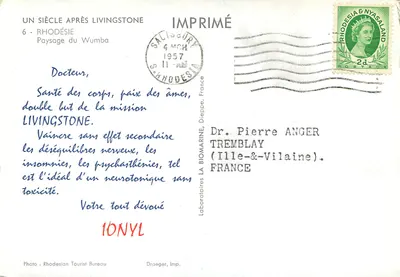 UN SIÈCLE APRÈS LIVINGSTONE
6 - RHODÉSIE
Paysage du Wumba
IMPRIMÉ
SALISBURY
1957
S. RHODESIA
RHODESIA & NYASALAND
2d
Docteur,
Santé des corps, paix des âmes,
double but de la mission
LIVINGSTONE.
Vaincre sans effet secondaire
les déséquilibres nerveux, les
insomnies, les psychasthénies, tel
est l'idéal d'un neurotonique sans
toxicité.
Votre tout dévoué
IONYL
Laboratoires LA BIOMARINE, Dieppe, France
Dr. Pierre ANGER
TREMBLAY
(Ille-&-Vilaine).
FRANCE
Photo - Rhodesian Tourist Bureau
Draeger, Imp.